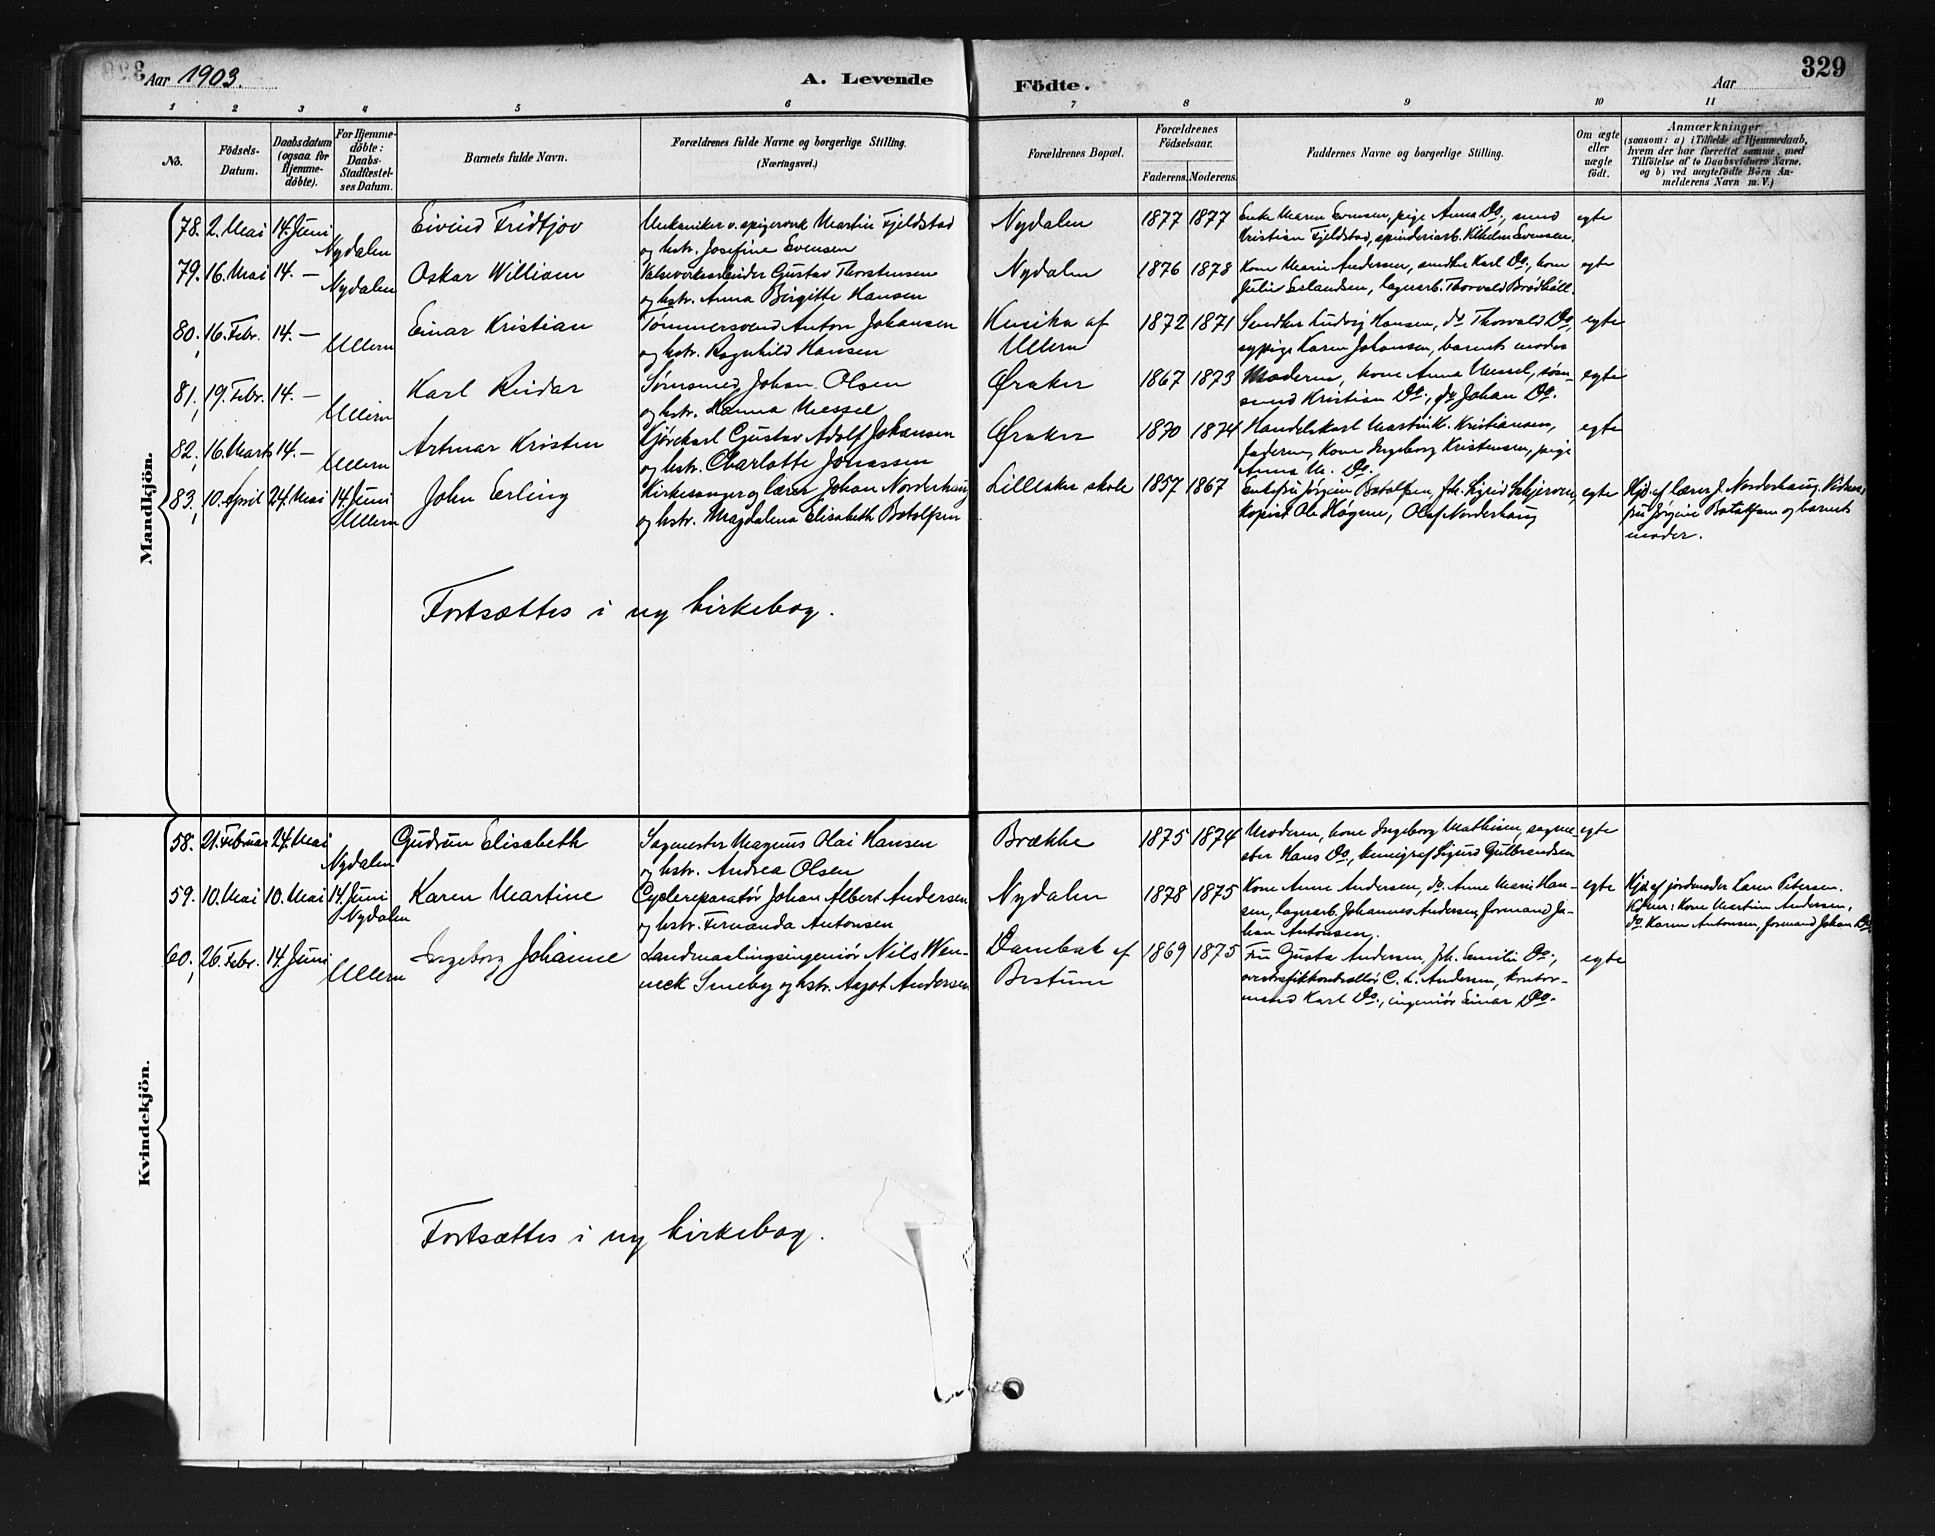 Aar 1903.
A. Levende
Födte.
Aar
329
1 2 3 4 5 6 7 8 9 10 11
No.
Födsels-
Datum.
Daabsdatum
(ogsaa for
Hjemme-
döbte).
For Hjemme-
döbte:
Daabs-
Stadfæstel-
ses Datum.
Barnets fulde Navn.
Forældrenes fulde Navne og borgerlige Stilling.
(Næringsvei.)
Forældrenes Bopæl.
Forældrenes
Födselsaar.
Faderens. Moderens.
Faddernes Navne og borgerlige Stilling.
Om ægte
eller
uægte
födt.
Anmærkninger
(saasom: a) i Tilfælde af Hjemmedaab,
hvem der har forrettet samme, med
Tilföielse af to Daabsvidners Navne,
og b) ved uægtefödte Börn An-
melderens Navn m. V.)
Mandkjön.
78. 2. Mai 14. Juni Nydalen
Eivind Fridtjov
Mekaniker v. spigerverk Martin Fjeldstad
og hstr. Josefine Evensen
Nydalen 1877 1877
Enke Maren Evensen, pige Anna Do., smed
Kristian Fjeldstad, spinderiarb. Evensen.
egte
79. 16. Mai 14. — Nydalen
Oskar William
Valseverksarbeider Gustav Thorstensen
og hstr. Anna Birgitte Hansen
Nydalen 1876 1878
Kone Marie Andersen, snedker Karl Do., kone
Julie Erlandsen, lagerarb. Thorvald
egte
80. 16. Febr. 14. — Ullern
Einar Kristian
Tømmersvend Anton Johansen
og hstr. Ragnhild Hansen
af
Ullern
1872 1871
Snedker Ludvig Hansen, do Thorvald Do,
sypige Karen Johansen, barnets moder
egte
81. 19. Febr. 14. — Ullern
Karl Reidar
Sømsmed Johan Olsen
og hstr. Hanna Messel
Øraker 1867 1873
Moderen, kone Anna Messel, søm-
smed Kristian Do., do Johan Do.
egte
82. 16. Marts 14. — Ullern
Artmar Kristen
Kjørekarl Gustav Adolf Johansen
og hstr. Charlotte Jonassen
Øraker 1870 1874
Handelskarl Martin K. Kristiansen,
faderen, kone Ingeborg Kristensen, pige
Anna M. Do.
egte
83. 10. April 24. Mai 14. Juni Ullern
John Erling
Kirkesanger og lærer Johan Norderhaug
og hstr. Magdalena Elisabeth Botolfsen
Lilleaker skole 1857 1867
Enkefru Jørgine Botolfsen, frk. Sigrid
kopist Ole Høgene, Olaf Norderhaug
egte
Hjd. af lærer J. Norderhaug.
fru Jørgine Botolfsen og barnets
moder.
Fortsættes i ny kirkebog.
Kvindekjön.
58. 21. Februar 24. Mai Nydalen
Gudrun Elisabeth
Sagmester Magnus Olai Hansen
og hstr. Andrea Olsen
Brække 1875 1874
Moderen, kone Ingeborg Mathisen, sagme-
ster Hans Do., Sigurd Gulbrandsen
egte
59. 10. Mai 10. Mai 14. Juni Nydalen
Karen Martine
Cyclereparatør Johan Albert Andersen
og hstr. Fernanda Antonsen
Nydalen 1878 1875
Kone Anne Andersen, do. Anne Marie Han-
sen, lagerarb. Johannes Andersen, formand Jo-
han Antonsen.
egte
Hjd. af jordmoder Karen Petersen.
Kone Martine Andersen,
do. Karen Antonsen, formand Johan Do.
60. 26. Febr. 14. Juni Ullern
Ingeborg Johanne
Landmaalingsingeniør Nils Wen-
neck Smeby og hstr. Aagot Andersen
Danebak af
Bestum
1869 1875
Fru Gusta Andersen, frk. Emilie Do.,
C. L. Andersen, kontor-
mand Karl Do., ingeniør Einar Do.
egte
Fortsættes i ny kirkebog.